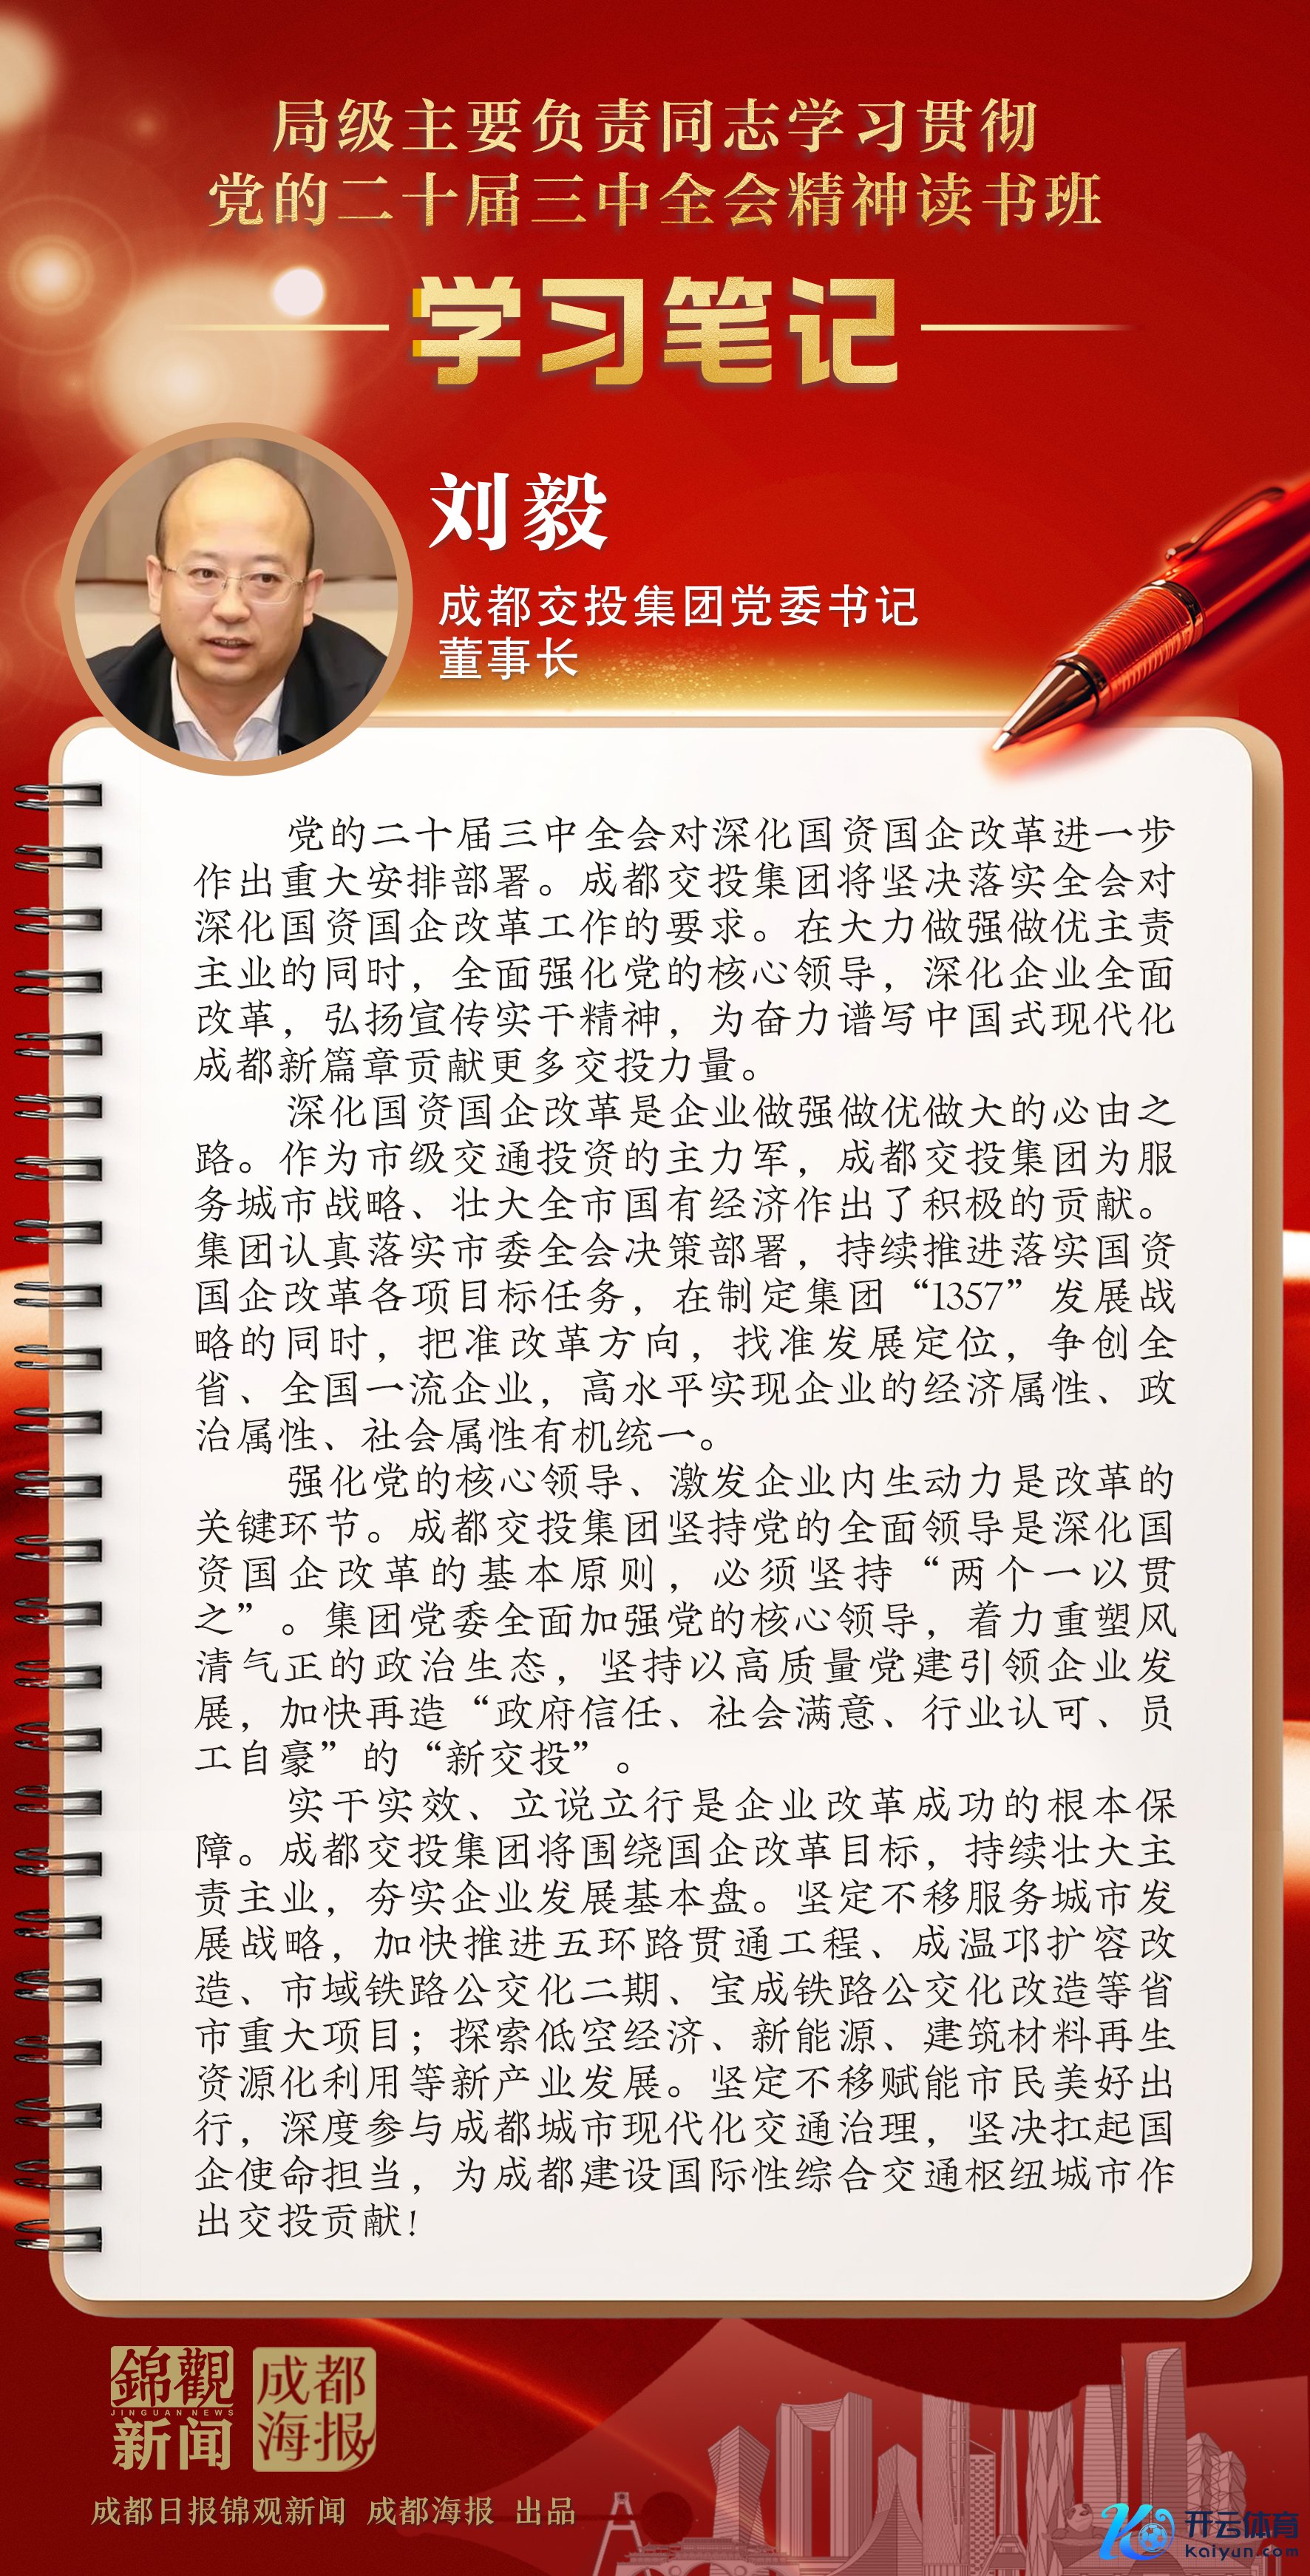 局级主要负责同志学习贯彻
党的二十届三中全会精神读书班
学习笔记
刘毅
成都交投集团党委书记
董事长
党的二十届三中全会对深化国资国企改革进一步
作出重大安排部署。成都交投集团将坚决落实全会对
深化国资国企改革工作的要求。在大力做强做优主责
主业的同时，全面强化党的核心领导，深化企业全面
改革，弘扬宣传实干精神，为奋力谱写中国式现代化
成都新篇章贡献更多交投力量。
深化国资国企改革是企业做强做优做大的必由之
路。作为市级交通投资的主力军，成都交投集团为服
务城市战略、壮大全市国有经济作出了积极的贡献。
集团认真落实市委全会决策部署，持续推进落实国资
国企改革各项目标任务，在制定集团“1357”发展战
略的同时，把准改革方向，找准发展定位，争创全
省、全国一流企业，高水平实现企业的经济属性、政
治属性、社会属性有机统一。
强化党的核心领导、激发企业内生动力是改革的
关键环节。成都交投集团坚持党的全面领导是深化国
资国企改革的基本原则，必须坚持“两个一以贯
之”。集团党委全面加强党的核心领导，着力重塑风
清气正的政治生态，坚持以高质量党建引领企业发
展，加快再造“政府信任、社会满意、行业认可、员
工自豪”的“新交投”。
实干实效、立说立行是企业改革成功的根本保
障。成都交投集团将围绕国企改革目标，持续壮大主
责主业，夯实企业发展基本盘。坚定不移服务城市发
展战略，加快推进五环路贯通工程、成温邛扩容改
造、市域铁路公交化二期、宝成铁路公交化改造等省
市重大项目；探索低空经济、新能源、建筑材料再生
资源化利用等新产业发展。坚定不移赋能市民美好出
行，深度参与成都城市现代化交通治理，坚决扛起国
企使命担当，为成都建设国际性综合交通枢纽城市作
出交投贡献！
錦觀
JINGUAN NEWS
新闻
成都
海报
成都日报锦观新闻 成都海报 出品
开云体育
kaiyun.com